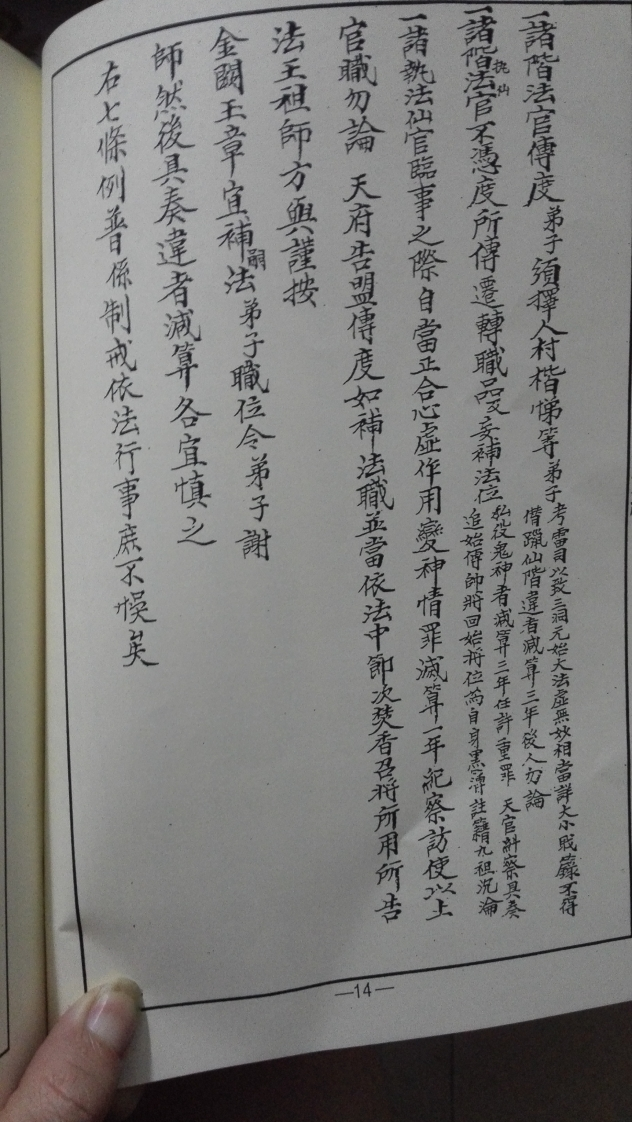 一諸階法官傳度弟子須擇人村楷悌等弟子考雷司以致三洞元始大法虛無妙相當詳大小戝籙不得
僭躐仙階違者減算三年後人勿論
一諸階法官不憑度所傳遷轉職品及妄補法位私役鬼神者減算三年任許重罪 天官糾察具奏
追始傳師將回始將位為自身黑籍註籍九祖沉淪
一諸執法仙官臨事之際自當正合心虛作用變神情罪滅算一年紀察訪使以上
官職勿論 天府告盟傳度如補法職並當依法中節次焚香召將所用所告
法王祖師方與謹按
金闕玉章宜補嗣法弟子職位令弟子謝
師然後具奏違者減算各宜慎之
右七條例普係制戒依法行事庶不悞矣
—14—